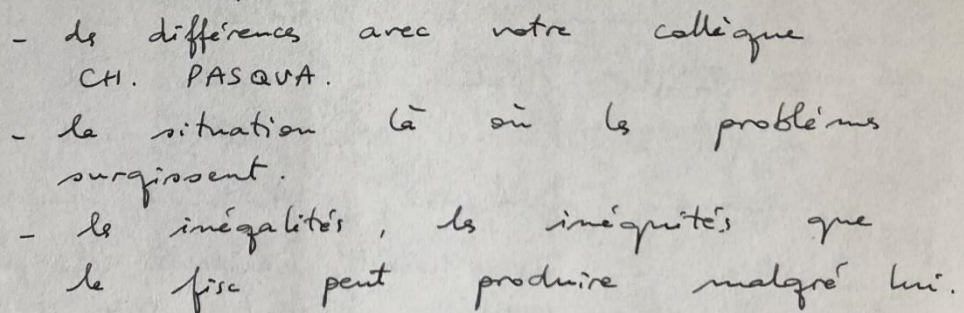 - des différences avec votre collègue
CH. PASQUA.
- la situation là où les problèmes
surgissent.
- les inégalités, les inéquités que
le fisc peut produire malgré lui.